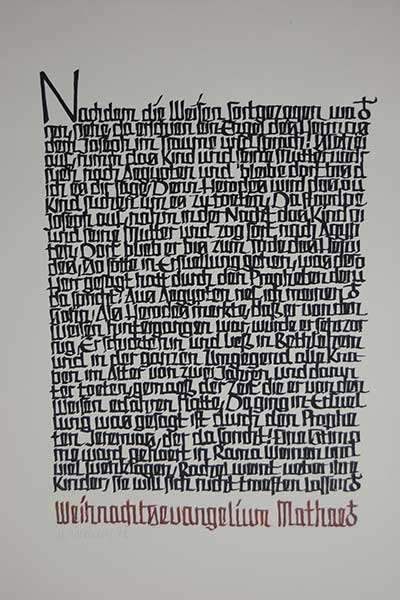 Nachdem die Weisen fortgezogen wa
ren, siehe, da erschien ein Engel des Herrn
dem Joseph im Traume und sprach: Steh
auf, nimm das Kind und seine Mutter
nach Aegypten und bleibe dort
ich es dir sage. Denn Herodes wird das
Kind suchen, um es zu toeten. Da stand
Joseph auf, nahm in der Nacht das Kind
und seine Mutter und zog fort nach Aegyp
ten. Dort blieb er bis zum Tode des Hero
des. So sollte in Erfuellung gehen, was der
Herr gesagt hatt durch den Propheten, der
da spricht: Aus Aegypten rief ich meinen
Sohn. Als Herodes merkte, daß er von den
Weisen hintergangen war, wurde er sehr zor
nig. Er schickte hin und ließ in Bethlehem
und in der ganzen Umgegend alle Kna
ben im Alter von zwei Jahren und darun
ter toeten, gemaeß der Zeit, die er von den
Weisen erfahren hatte. Da ging in Erfuel
lung, was gesagt ist durch den Prophe
ten Jeremias, der da spricht: Eine Stim
me ward gehoert in Rama, Weinen und
viel Wehklagen, Rachel weint ueber ihre
Kinder, sie will sich nicht troesten lassen
Weihnachtsevangelium Mathaes